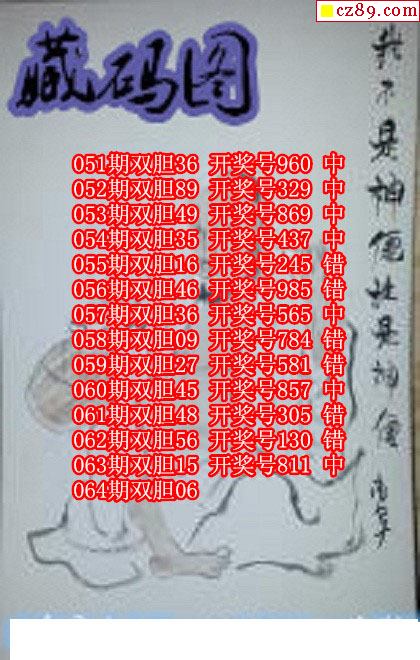 cz89.com
藏码图
051期双胆36 开奖号960 中
052期双胆89 开奖号329 中
053期双胆49 开奖号869 中
054期双胆35 开奖号437 中
055期双胆16 开奖号245 错
056期双胆46 开奖号985 错
057期双胆36 开奖号565 中
058期双胆09 开奖号784 错
059期双胆27 开奖号581 错
060期双胆45 开奖号857 中
061期双胆48 开奖号305 错
062期双胆56 开奖号130 错
063期双胆15 开奖号811 中
064期双胆06
我不是神仙